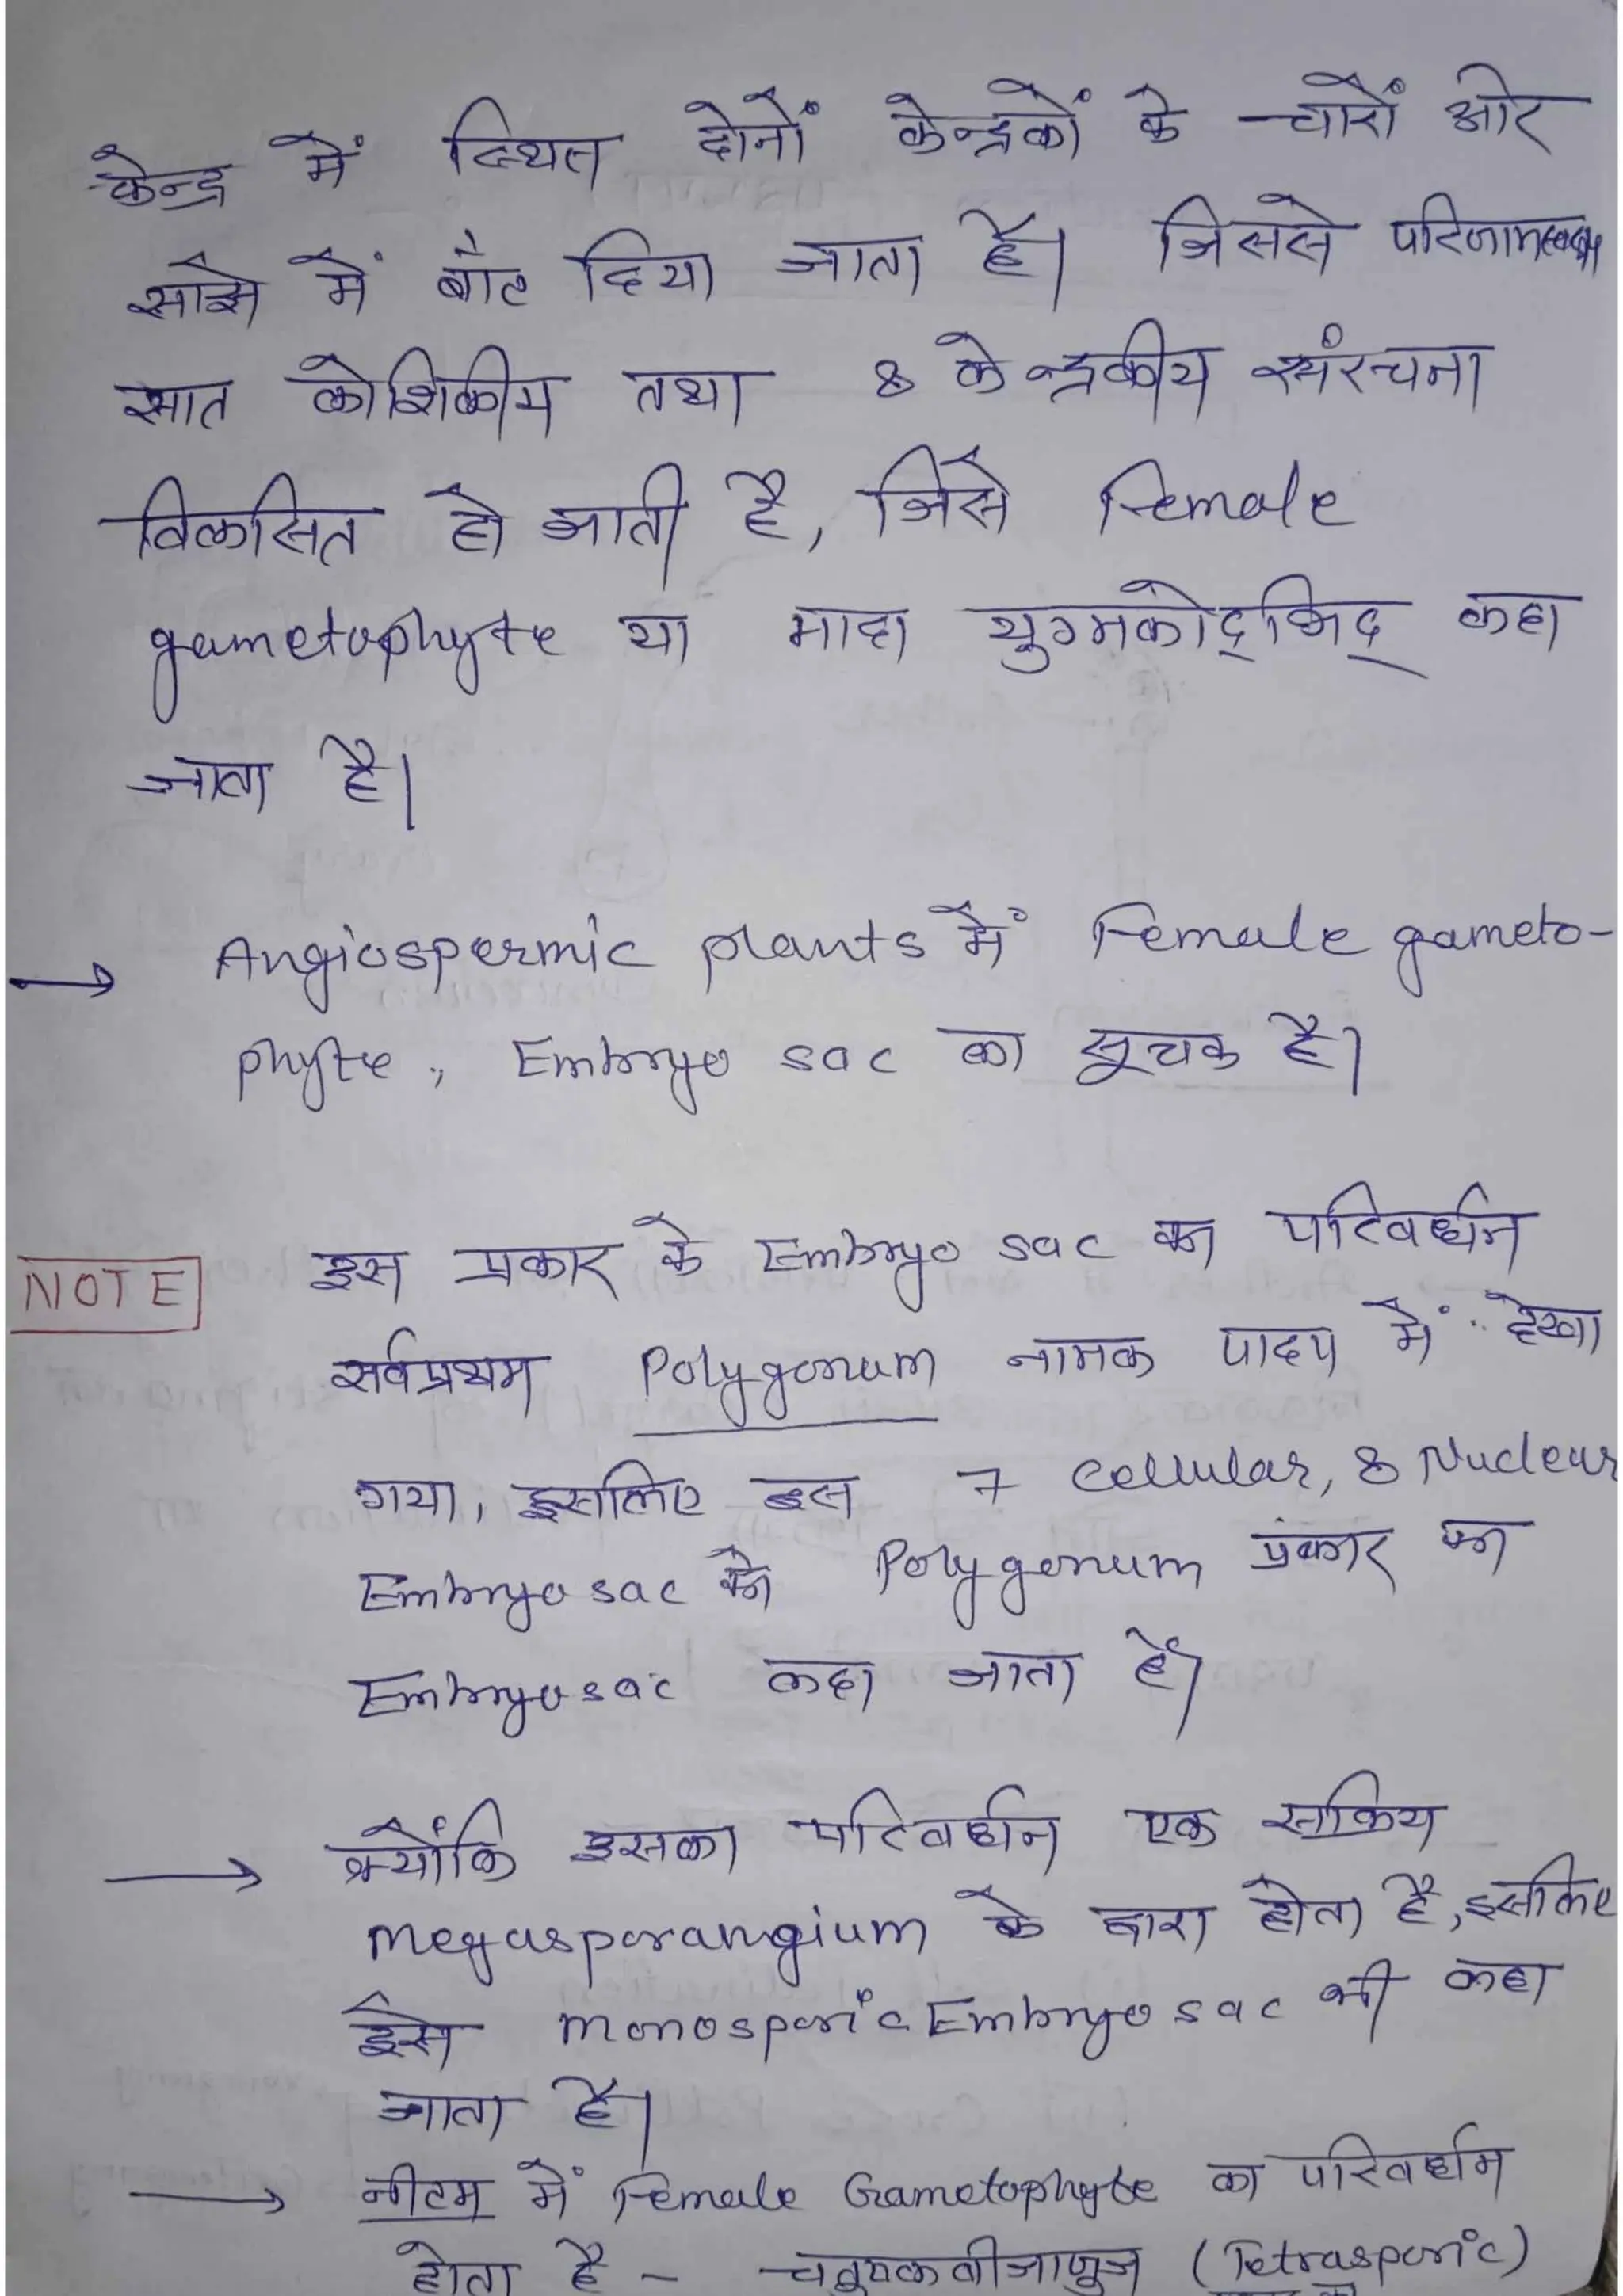 केन्द्र में स्थित दोनों केन्द्रकों के चारों ओर
साझे में बाँट दिया जाता है। जिससे परिणामस्वरूप
सात कोशिकीय तथा 8 केन्द्रकीय संरचना
विकसित हो जाती है, जिसे Female
gametophyte या मादा युग्मकोद्भिद् कहा
जाता है।
→ Angiospermic plants में Female gameto-
phyte, Embryo sac का सूचक है।
NOTE इस प्रकार के Embryo sac का परिवर्धन
सर्वप्रथम Polygonum नामक पादप में देखा
गया, इसलिए इस 7 Cellular, 8 Nuclear
Embryo sac को Polygonum प्रकार का
Embryo sac कहा जाता है।
→ क्योंकि इसका परिवर्धन एक सक्रिय
megasporangium के द्वारा होता है, इसलिए
इसे monosporic Embryo sac भी कहा
जाता है।
→ नीटम में Female Gametophyte का परिवर्धन
होता है - चतुष्कबीजाणुज (Tetrasporic)